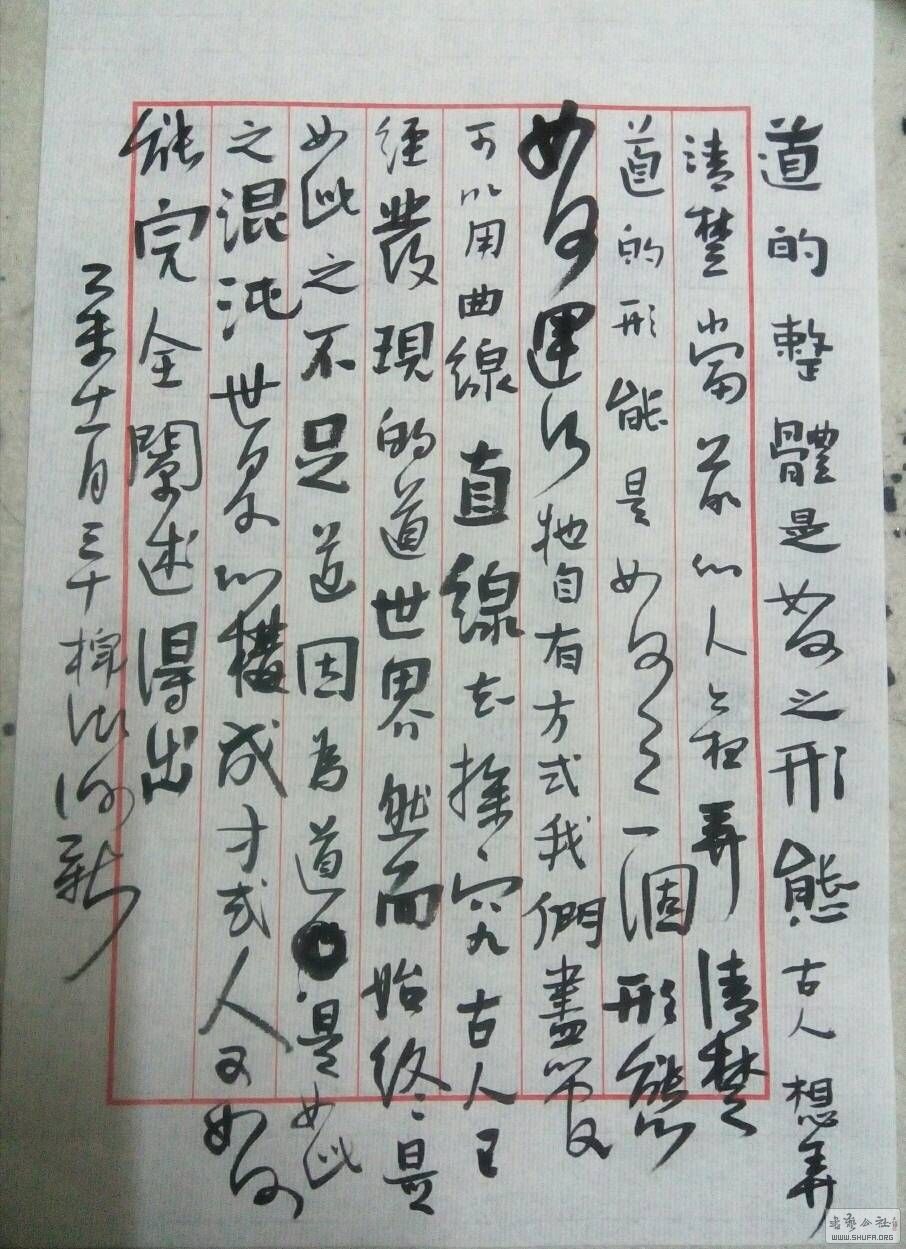 道的整體是如何之形態古人想弄
清楚當前的人也想弄清楚
道的形態是如何之一個形態
如何運行牠自有方式我們盡管
可以用曲線直線去探究古人已
經發現的道世界然而始終是
如此之不足道因為道是如此
之混沌世界的構成方式人又如何
能完全闡述得出
乙未十一月三十
书艺公社
WWW.SHUFA.ORG